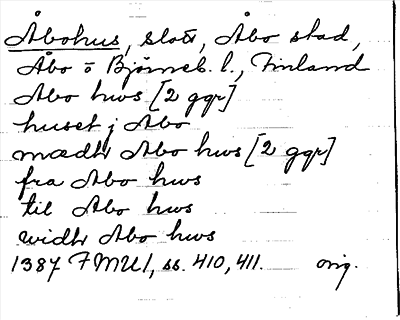 Åbohus, slott, Åbo stad,
Åbo o Björneb. l., Finland
Abo hws [2 ggr]
huset j Abo
mædh Abo hws [2 ggr]
fra Abo hws
til Abo hws
widh Abo hws
1387 FMU 1, ss. 410, 411. orig.